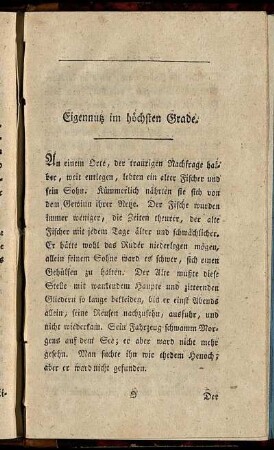 Eigennutz im höchsten Grade.
An einem Orte, der traurigen Nachfrage hal-
ber, weit entlegen, lebten ein alter Fischer und
sein Sohn. Kümmerlich nährten sie sich von
dem Gewinn ihrer Netze. Der Fische wurden
immer weniger, die Zeiten theurer, der alte
Fischer mit jedem Tage älter und schwächlicher.
Er hätte wohl das Ruder niederlegen mögen,
allein seinem Sohne ward es schwer, sich einen
Gehülfen zu halten. Der Alte mußte diese
Stelle mit wankendem Haupte und zitternden
Gliedern so lange bekleiden, bis er einst Abends
allein, seine Reusen nachzusehn, ausfuhr, und
nicht wiederkam. Sein Fahrzeug schwamm Mor-
gens auf dem See; er aber ward nicht mehr
gesehn. Man suchte ihn wie ehedem Henoch;
aber er ward nicht gefunden.
Der